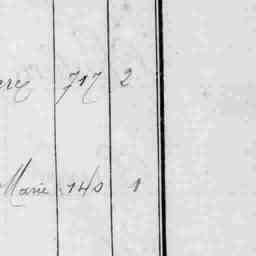 717 2
Marie 140 1